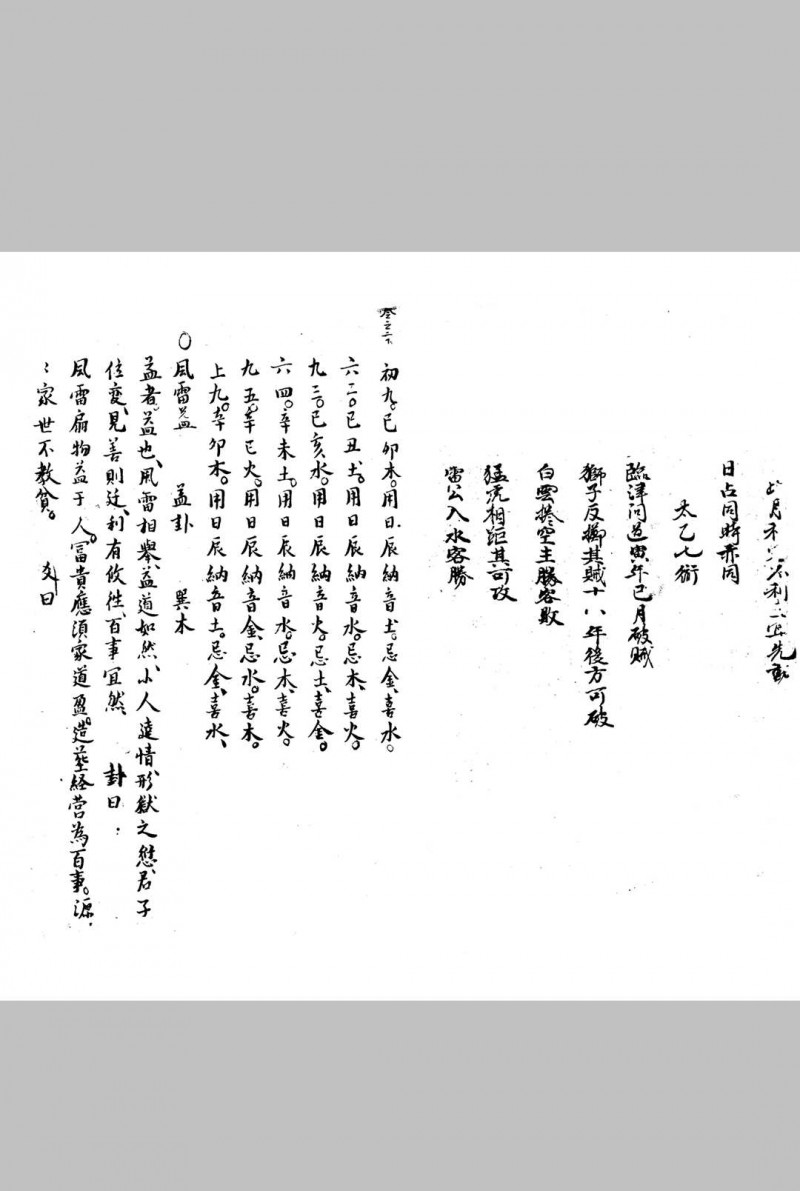 日占同時亦同
太乙七術
臨津问道寅年已月破贼
獅子反擲其贼十八年後方可破
白雲捲空主勝客敗
猛虎相距其可攻
雷公入水客勝
初九。已卯木。用日辰納音土。忌金、喜水。
六二。已丑土。用日辰納音水。忌木、喜火。
九三。已亥水。用日辰納音火。忌土、喜金。
六四。辛未土。用日辰納音水。忌木、喜火。
九五。辛已火。用日辰納音金、忌水。喜木。
上九。辛卯木。用日辰納音土。忌金、喜水、
〇風雷益　益卦　巽木
益者、益也、風雷相舉、益道如然、小人違情、形獄之愆、君子
佳变、見善則迁、利有攸往、百事宜然、　卦曰：
風雷扇物益于人。冨貴應須家道盈。造塟経营為百事。源，
：家世不教貧。　爻曰